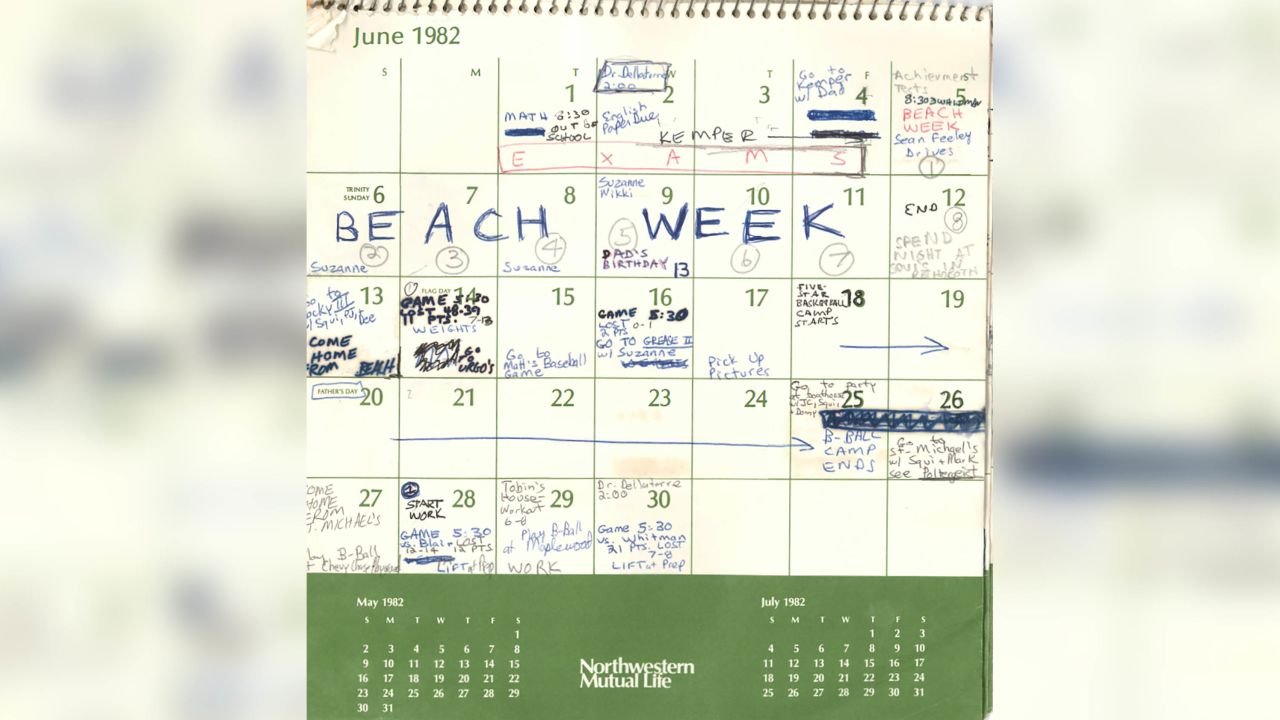 June 1982
S M T W T F S
Dr. Dellatorre
2:00
Go to
Kemper
w/ Dad
Achievement
Tests
1 2 3 4 5
8:30
MATH 8:30
OUT OF
SCHOOL
English
Paper Due
KEMPER
BEACH
WEEK
Sean Feeley
Drives
1
E X A M S
TRINITY
SUNDAY
6 7 8 9 10 11 12
Suzanne
Nikki
BEACH WEEK
END
8
2 3 4 5 6 7
SPEND
NIGHT AT
SQUI'S IN
REHOBOTH
Suzanne
Suzanne
DAD'S
BIRTHDAY
13
13 FLAG DAY 14 15 16 17 18 19
to
Rocky III
w/ Squi, PJ,
COME
HOME
FROM BEACH
GAME 5:30
LOST 48-39
11 PTS. 7-13
WEIGHTS
GO
to
URGO'S
Go to
Matt's Baseball
Game
GAME 5:30
LOST 0-1
2 PTS
GO TO GREASE II
w/ Suzanne
Pick Up
Pictures
FIVE-
STAR
BASKETBALL
CAMP
STARTS
FATHER'S DAY
20 21 22 23 24 25 26
Go to party
at boathouse
w/ JC, Squi,
B-BALL
CAMP
ENDS
Go to
St. Michael's
w/ Squi + Mark
see Poltergeist
27 28 29 30
COME
HOME
FROM
ST. MICHAEL'S
B-Ball
Chevy Chase
START
WORK
GAME 5:30
vs. Blair LOST
12-14 12 PTS
LIFT at Prep
Tobin's
House-
Workout
6-8
Play B-Ball
at Maplewood
WORK
Dr. Dellatorre
2:00
Game 5:30
vs. Whitman
21 PTS. LOST
7-8
LIFT at Prep
May 1982
S M T W T F S
1
2 3 4 5 6 7 8
9 10 11 12 13 14 15
16 17 18 19 20 21 22
23 24 25 26 27 28 29
30 31
Northwestern
Mutual Life
July 1982
S M T W T F S
1 2 3
4 5 6 7 8 9 10
11 12 13 14 15 16 17
18 19 20 21 22 23 24
25 26 27 28 29 30 31